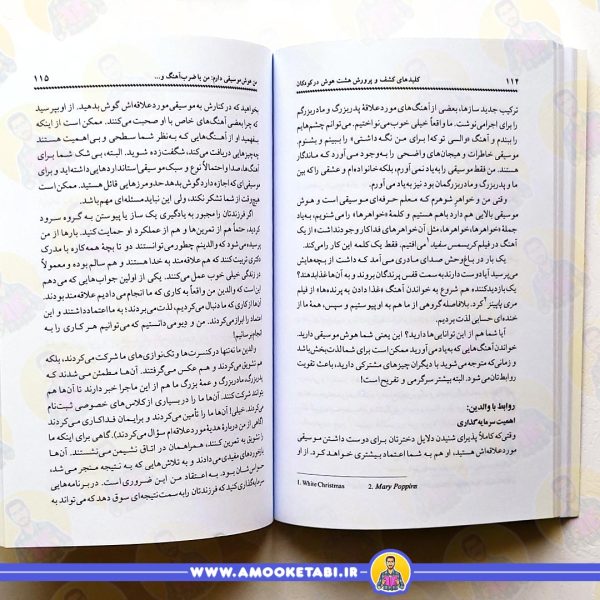 ۱۱۴
کلیدهای کشف و پرورش هشت هوش در کودکان
ترکیب جدید سازها، بعضی از آهنگ‌های مورد علاقهٔ پدربزرگ و مادربزرگم
را برای اجرا می‌نوشت. ما واقعاً خیلی خوب می‌نواختیم. می‌توانم چشم‌هایم
را ببندم و آهنگ «والی تو که! برای من نگه داشتنی» را ببینم و بشنوم.
موسیقی خاطرات و هیجان‌های واضحی را به‌وجود می‌آورد که ماندگار
هستند. من فقط موسیقی را به‌یاد نمی‌آورم، بلکه خانواده‌ام و عشقی را که بین
ما و پدربزرگ و مادربزرگمان بود نیز به‌یاد می‌آورم.
وقتی من و خواهرِ شوهرم که معلم حرفه‌ای موسیقی است و هوش
موسیقی بالایی هم دارد باهم هستیم و کلمهٔ «خواهرها» را می‌شنویم، به‌یاد
جملهٔ «خواهرها، خواهرها، مثل آن خواهرهای فداکار وجود نداشت» از یک
آهنگ در فیلم کریسمس سفید۱ می‌افتیم. فقط یک کلمه این کار را می‌کند.
یک بار در باغ‌وحش صدای مادری می‌آمد که داشت از بچه‌هایش
می‌پرسید آیا دوست دارند به سمت قفس پرندگان بروند و به آن‌ها غذا بدهند؟
یک بازدیدکننده هم شروع به خواندن آهنگ «غذا دادن به پرنده‌ها» از فیلم
مری پاپینز۲ کرد. بلافاصله گروهی از ما هم به او پیوستیم و سپس، همهٔ ما از
خنده‌ای حسابی لذت بردیم.
آیا شما هم از این توانایی‌ها دارید؟ این یعنی شما هوش موسیقی دارید.
خواندن آهنگ‌هایی که به‌یاد می‌آورید ممکن است برای شما لذت‌بخش باشد
و زمانی که متوجه می‌شوید با دیگران چیزهای مشترکی دارید، باعث تقویت
روابط‌تان می‌شود. البته بیشتر سرگرمی و تفریح است!
روابط با والدین:
اهمیت سرمایه‌گذاری
وقتی که کاملاً پذیرای شنیدن دلایل دخترتان برای دوست داشتن موسیقی
مورد علاقه‌اش هستید، او هم به شما اعتماد بیشتری خواهد کرد. از او
1. White Christmas
2. Mary Poppins
من هوش موسیقی دارم: من با ضرب‌آهنگ و...
۱۱۵
بخواهید که در کنارش به موسیقی مورد علاقه‌اش گوش بدهید. از او بپرسید
که چرا بعضی آهنگ‌های خاص با او صحبت می‌کنند. ممکن است از اینکه
بفهمید او از آهنگ‌هایی که به‌نظر شما سطحی و بی‌اهمیت هستند
چه چیزهایی دریافت می‌کند، شگفت‌زده شوید. البته، بی شک شما برای
آهنگ‌ها، صدا و احتمالاً نوع و سبک موسیقی استانداردهایی داشته‌اید و برای
موسیقی‌ای که اجازه دارد گوش بدهد حد و مرزهایی قائل هستید. ممکن است
او هم از شما تشکر نکند، ولی این نباید مسئله‌ای مهم باشد.
اگر فرزندتان را مجبور به یادگیری یک ساز یا پیوستن به گروه سرود
کردید، حتماً هم از تمرین‌ها و هم از عملکرد او حمایت کنید. بارها از من
پرسیده می‌شود که والدینم چطور می‌توانستند دو تا بچهٔ همه‌کاره با مدرک
دکتری تربیت کنند که هم علاقه‌مند به خدا هستند و هم سالم بوده و معمولاً
در زندگی خیلی خوب عمل می‌کنند. یکی از اولین جواب‌هایی که می‌دهم
این است که والدین من واقعاً به کاری که ما انجام می‌دادیم علاقه‌مند بودند.
آن‌ها از کاری که ما دنبال می‌کردیم، لذت می‌بردند، به ما اعتماد داشتند و این
اعتماد را ابراز می‌کردند. من و دیو می‌دانستیم که می‌توانیم هر کاری را به
انجام برسانیم!
والدین ما نه‌تنها در کنسرت‌ها و تک‌نوازی‌های ما شرکت می‌کردند، بلکه
تشویق می‌کردند و هم عکس می‌گرفتند. آن‌ها مطمئن می‌شدند که
پدربزرگ، مادربزرگ و عمهٔ بزرگ ما هم از این ماجرا خبر دارند تا آن‌ها هم
شرکت کنند. آن‌ها ما را در بسیاری از کلاس‌های خصوصی ثبت‌نام
می‌کردند. خیلی! آن‌ها ما را تأمین می‌کردند و برایمان فداکاری می‌کردند
(گاهی از من دربارهٔ هدیهٔ مورد علاقه‌ام سؤال می‌کردند). گاهی برای اینکه ما
را تشویق به تمرین کنند، همراهمان در اتاق نشیمن می‌نشستند. آن‌ها
بازخوردهای مفیدی می‌دادند و به تلاش‌هایی که به نتیجه منجر می‌شد،
حواس‌شان بود. به اعتقاد من این ضروری است. در برنامه‌هایی
سرمایه‌گذاری کنید که فرزندتان را به سمت نتیجه‌ای سوق دهد که می‌تواند به
WWW.AMOOKETABI.IR